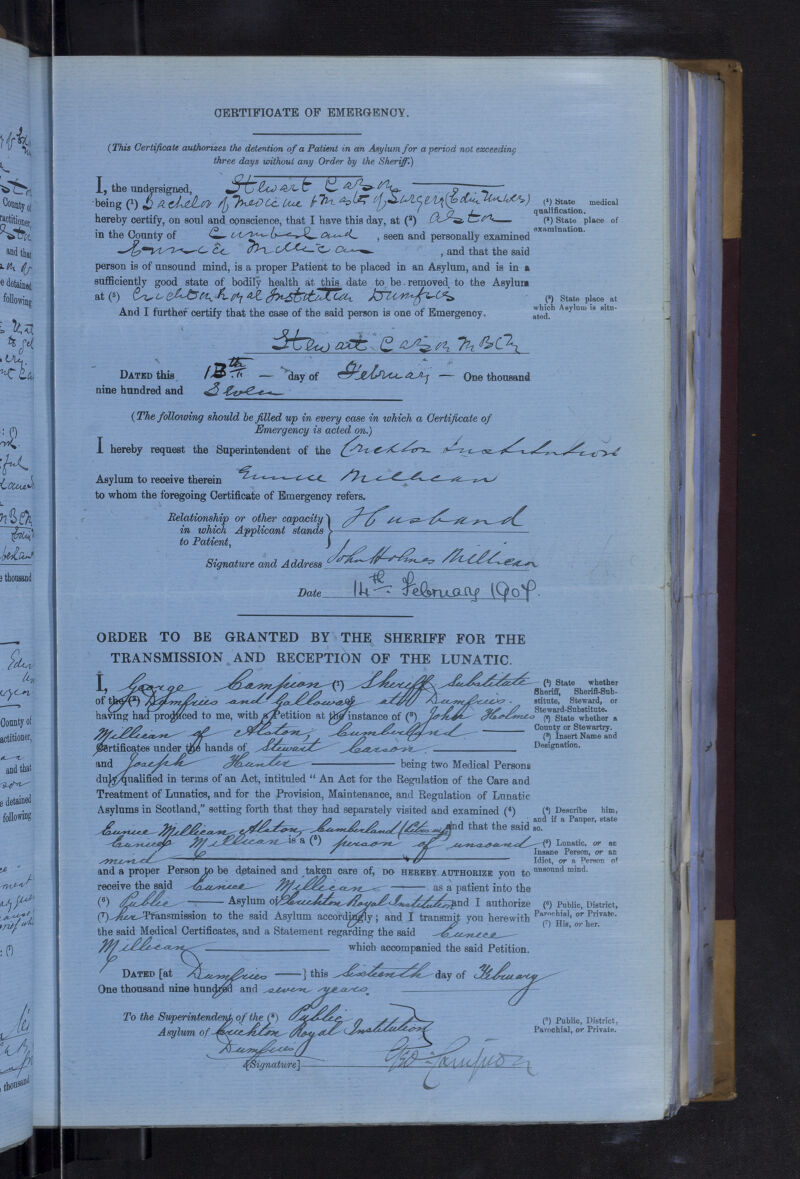 CERTIFICATE OF EMERGENCY.
(This Certificate authorizes the detention of a Patient in an Asylum for a period not exceeding
three days without any Order by the Sheriff.)
I, the undersigned, Stewart Carson
being (¹) Bachelor of Medicine & Master of Surgery (Edin Univers)
hereby certify, on soul and conscience, that I have this day, at (²) Alston
in the County of Cumberland, seen and personally examined
Eunice Millican, and that the said
person is of unsound mind, is a proper Patient to be placed in an Asylum, and is in a
sufficiently good state of bodily health at this date to be removed to the Asylum
at (³) Crichton Royal Institution Dumfries
And I further certify that the case of the said person is one of Emergency.
(¹) State medical
qualification.
(²) State place of
examination.
(³) State place at
which Asylum is situ-
ated.
Stewart Carson M B Ch
DATED this 13th — day of February — One thousand
nine hundred and Seven
(The following should be filled up in every case in which a Certificate of
Emergency is acted on.)
I hereby request the Superintendent of the Crichton Institution
Asylum to receive therein Eunice Millican
to whom the foregoing Certificate of Emergency refers.
Relationship or other capacity
in which Applicant stands
to Patient,
} Husband
Signature and Address John Holmes Millican
Date 14th February 1907.
ORDER TO BE GRANTED BY THE SHERIFF FOR THE
TRANSMISSION AND RECEPTION OF THE LUNATIC.
I, George Campion (¹) Sheriff Substitute
of the (²) Dumfries and Galloway at Dumfries.
having had produced to me, with a Petition at the instance of (³) John Holmes
Millican of Alston, Cumberland. —
Certificates under the hands of Stewart Carson. —
and Joseph Hunter — being two Medical Persons
duly qualified in terms of an Act, intituled "An Act for the Regulation of the Care and
Treatment of Lunatics, and for the Provision, Maintenance, and Regulation of Lunatic
Asylums in Scotland," setting forth that they had separately visited and examined (⁴)
Eunice Millican, Alston, Cumberland and that the said
Eunice Millican is a (⁵) person of unsound
mind —
and a proper Person to be detained and taken care of, DO HEREBY AUTHORIZE you to
receive the said Eunice Millican — as a patient into the
(⁶) Public — Asylum of Crichton Royal Institution and I authorize
(⁷) her Transmission to the said Asylum accordingly; and I transmit you herewith
the said Medical Certificates, and a Statement regarding the said Eunice
Millican — which accompanied the said Petition.
(¹) State whether
Sheriff, Sheriff-Sub-
stitute, Steward, or
Steward-Substitute.
(²) State whether a
County or Stewartry.
(³) Insert Name and
Designation.
(⁴) Describe him,
and if a Pauper, state
so.
(⁵) Lunatic, or an
Insane Person, or an
Idiot, or a Person of
unsound mind.
(⁶) Public, District,
Parochial, or Private.
(⁷) His, or her.
DATED [at Dumfries —] this Sixteenth day of February
One thousand nine hundred and seven years.
To the Superintendent of the (⁸) Public
Asylum of Crichton Royal Institution
Dumfries
(⁸) Public, District,
Parochial, or Private.
[Signature] Geo: Campion
County of
and that
e detained
following
e thousand
County of
actitioner,
and that
e detained
following
thousand